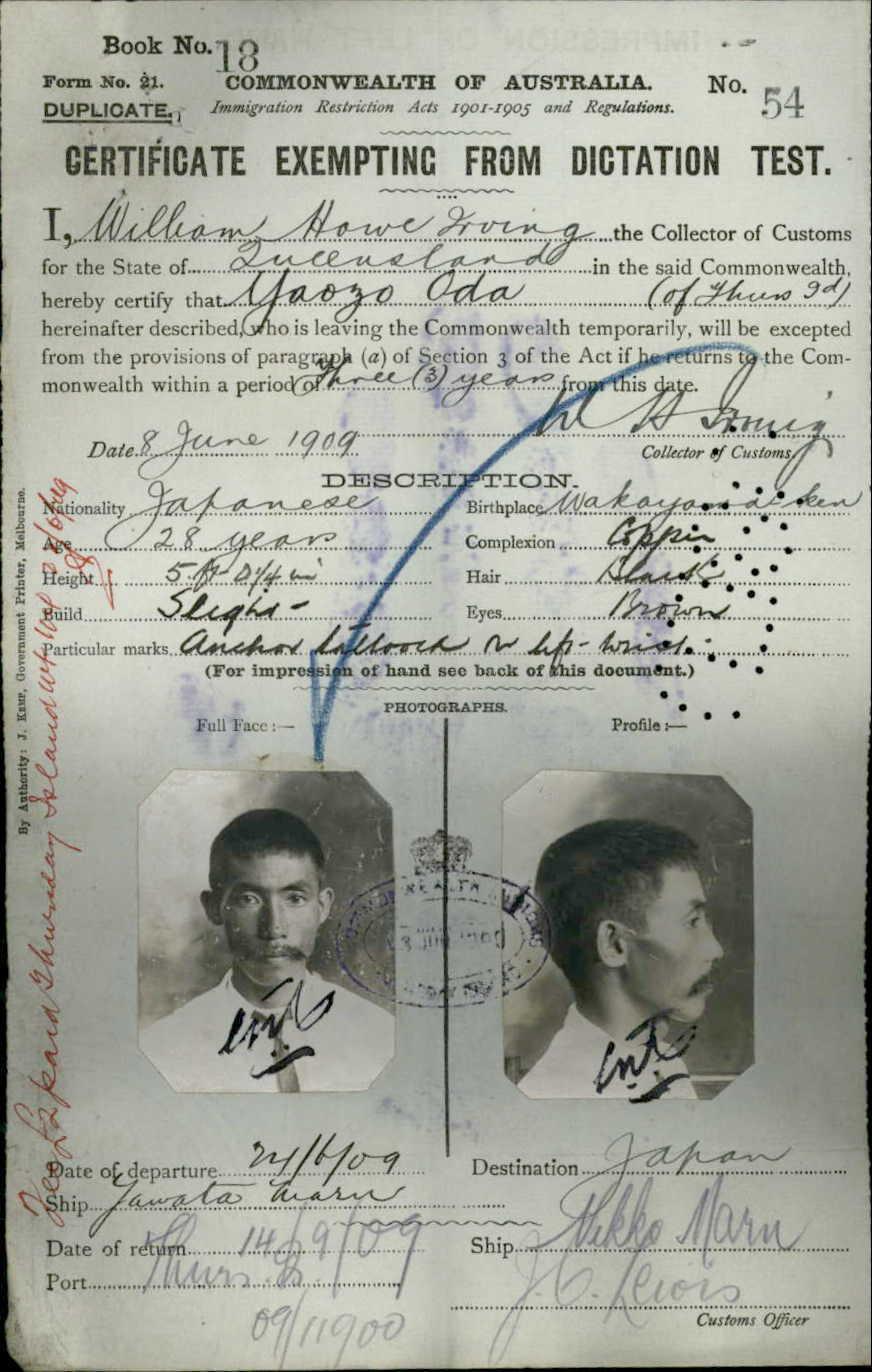 Book No. 18
Form No. 21. COMMONWEALTH OF AUSTRALIA. No. 54
DUPLICATE. Immigration Restriction Acts 1901-1905 and Regulations.
CERTIFICATE EXEMPTING FROM DICTATION TEST.
I, William Howe Irving the Collector of Customs
for the State of Queensland in the said Commonwealth,
hereby certify that Yaozo Oda (of Thurs Id)
hereinafter described, who is leaving the Commonwealth temporarily, will be excepted
from the provisions of paragraph (a) of Section 3 of the Act if he returns to the Com-
monwealth within a period of three (3) years from this date.
W H Irving
Date 8 June 1909 Collector of Customs
DESCRIPTION.
Nationality Japanese Birthplace Wakayama ken
Age 28 years Complexion Copper
Height 5 ft 0 1/4 in Hair Black
Build Slight Eyes Brown
Particular marks Anchor tattooed on left wrist
(For impression of hand see back of this document.)
PHOTOGRAPHS.
Full Face :— Profile :—
Date of departure 24/6/09 Destination Japan
Ship Yawata Maru
Date of return 14/9/09 Ship Nikko Maru
Port Thurs. Is.
J. C. Lewis
Customs Officer
09/11900
By Authority: J. KEMP, Government Printer, Melbourne.
paid Thursday Island